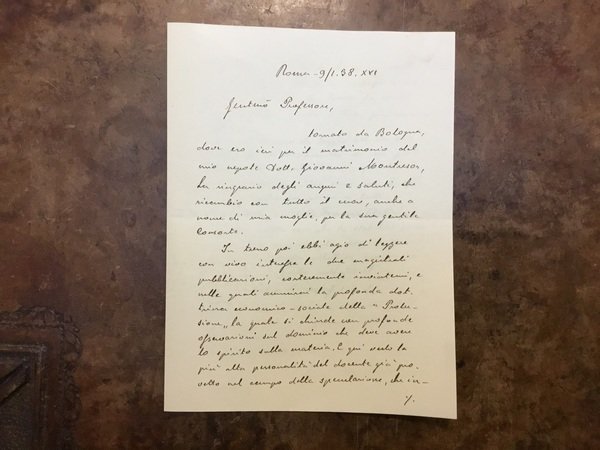 Roma - 9/1.38.XVI
Gentmo Professore,
tornato da Bologna,
dove ero ieri per il matrimonio del
mio nepote Dott. Giovanni Montresor,
La ringrazio degli auguri e saluti, che
ricambio con tutto il cuore, anche a
nome di mia moglie, per la sua gentile
Consorte.
In treno poi ebbi agio di leggere
con vivo interesse le due magistrali
pubblicazioni, cortesemente inviatemi, e
nelle quali ammirai la profonda dot-
trina economico-sociale della "
la quale si chiude con profonde
osservazioni sul dominio che deve avere
lo spirito sulla materia. E qui vedo la
più alta personalità del docente già pro-
vetto nel campo della speculazione, che in-
./.